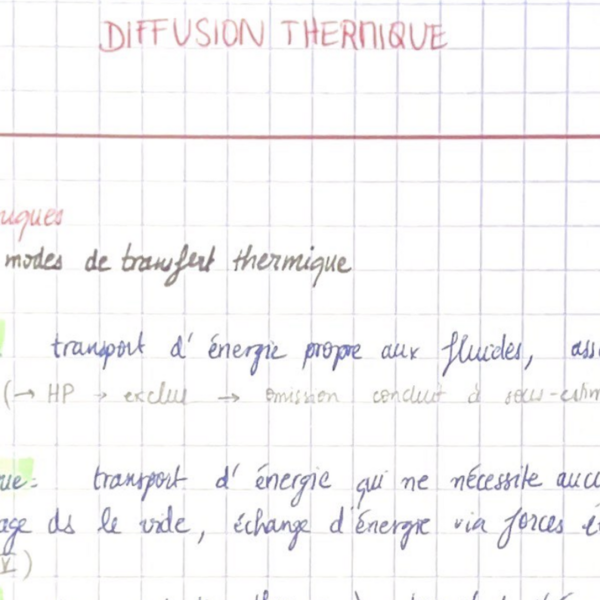 DIFFUSION THERMIQUE
iques
modes de transfert thermique
transport d'énergie propre aux fluides, ass
(→ HP → exclus → omission conduit à sous-estim
ue: transport d'énergie qui ne nécessite aucu
age ds le vide, échange d'énergie via forces é